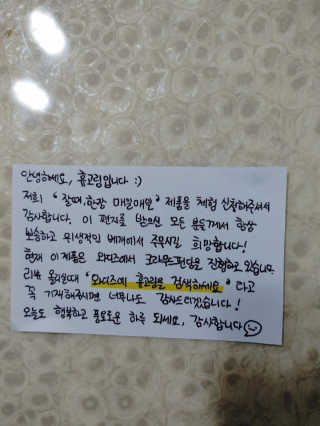 안녕하세요, 홈고림입니다 :)
저희 "잘때,한장 매일매일" 제품을 체험 신청해주셔서
감사합니다. 이 편지를 받으신 모든 분들께서 항상
뽀송하고 위생적인 베개에서 주무시길 희망합니다!
현재 이 제품은 와디즈에서 크라우드펀딩을 진행하고 있습니다.
리뷰 올리실때 "와디즈에 홈고림을 검색하세요" 라고
꼭 기재해주시면 너무나도 감사드리겠습니다!
오늘도 행복하고 풍요로운 하루 되세요, 감사합니다